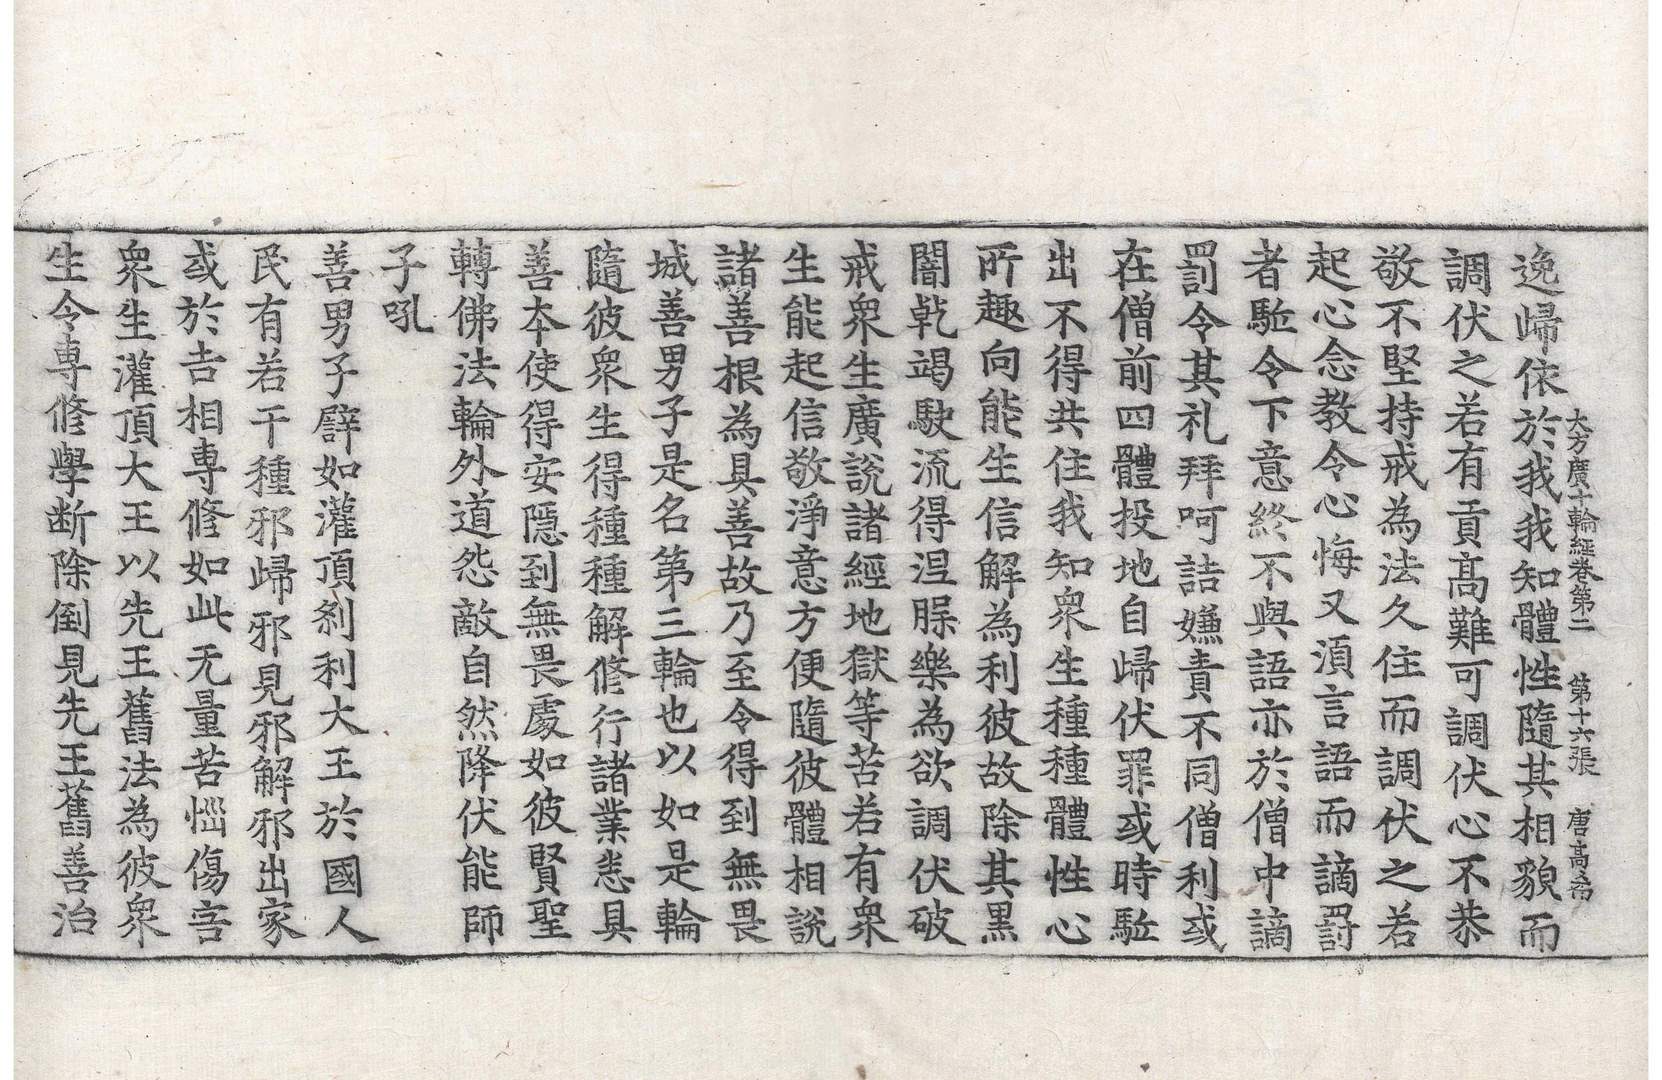 大方廣十輪經卷第二　第十六張　唐高希
逸歸依於我我知體性隨其相貌而
調伏之若有貢高難可調伏心不恭
敬不堅持戒為法久住而調伏之若
起心念教令心悔又湏言語而謫罸
者駈令下意終不與語亦於僧中謫
罰令其礼拜呵詰嫌責不同僧利或
在僧前四體投地自歸伏罪或時駈
出不得共住我知衆生種種體性心
所趣向能生信解為利彼故除其黒
闇乾竭駛流得涅槃樂為欲調伏破
戒衆生廣說諸經地獄等苦若有衆
生能起信敬淨意方便隨彼體相說
諸善根為具善故乃至令得到無畏
城善男子是名第三輪也以如是輪
隨彼衆生得種種解修行諸業悉具
善夲使得安隱到無畏處如彼賢聖
轉佛法輪外道怨敵自然降伏能師
子吼
善男子譬如灌頂刹利大王於國人
民有若干種邪歸邪見邪解邪出家
或於吉相専修如此无量苦惱傷害
衆生灌頂大王以先王舊法為彼衆
生令専修學断除倒見先王舊善治